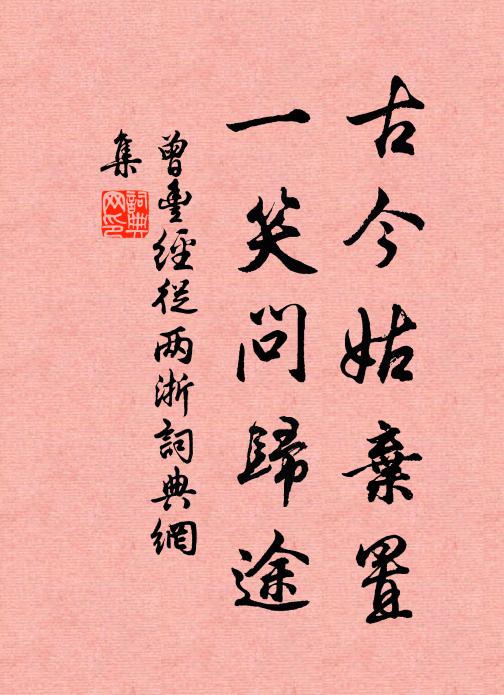 古今姑棄置
一笑問歸途
曾豐經從两浙詞典網
集
詞典网印